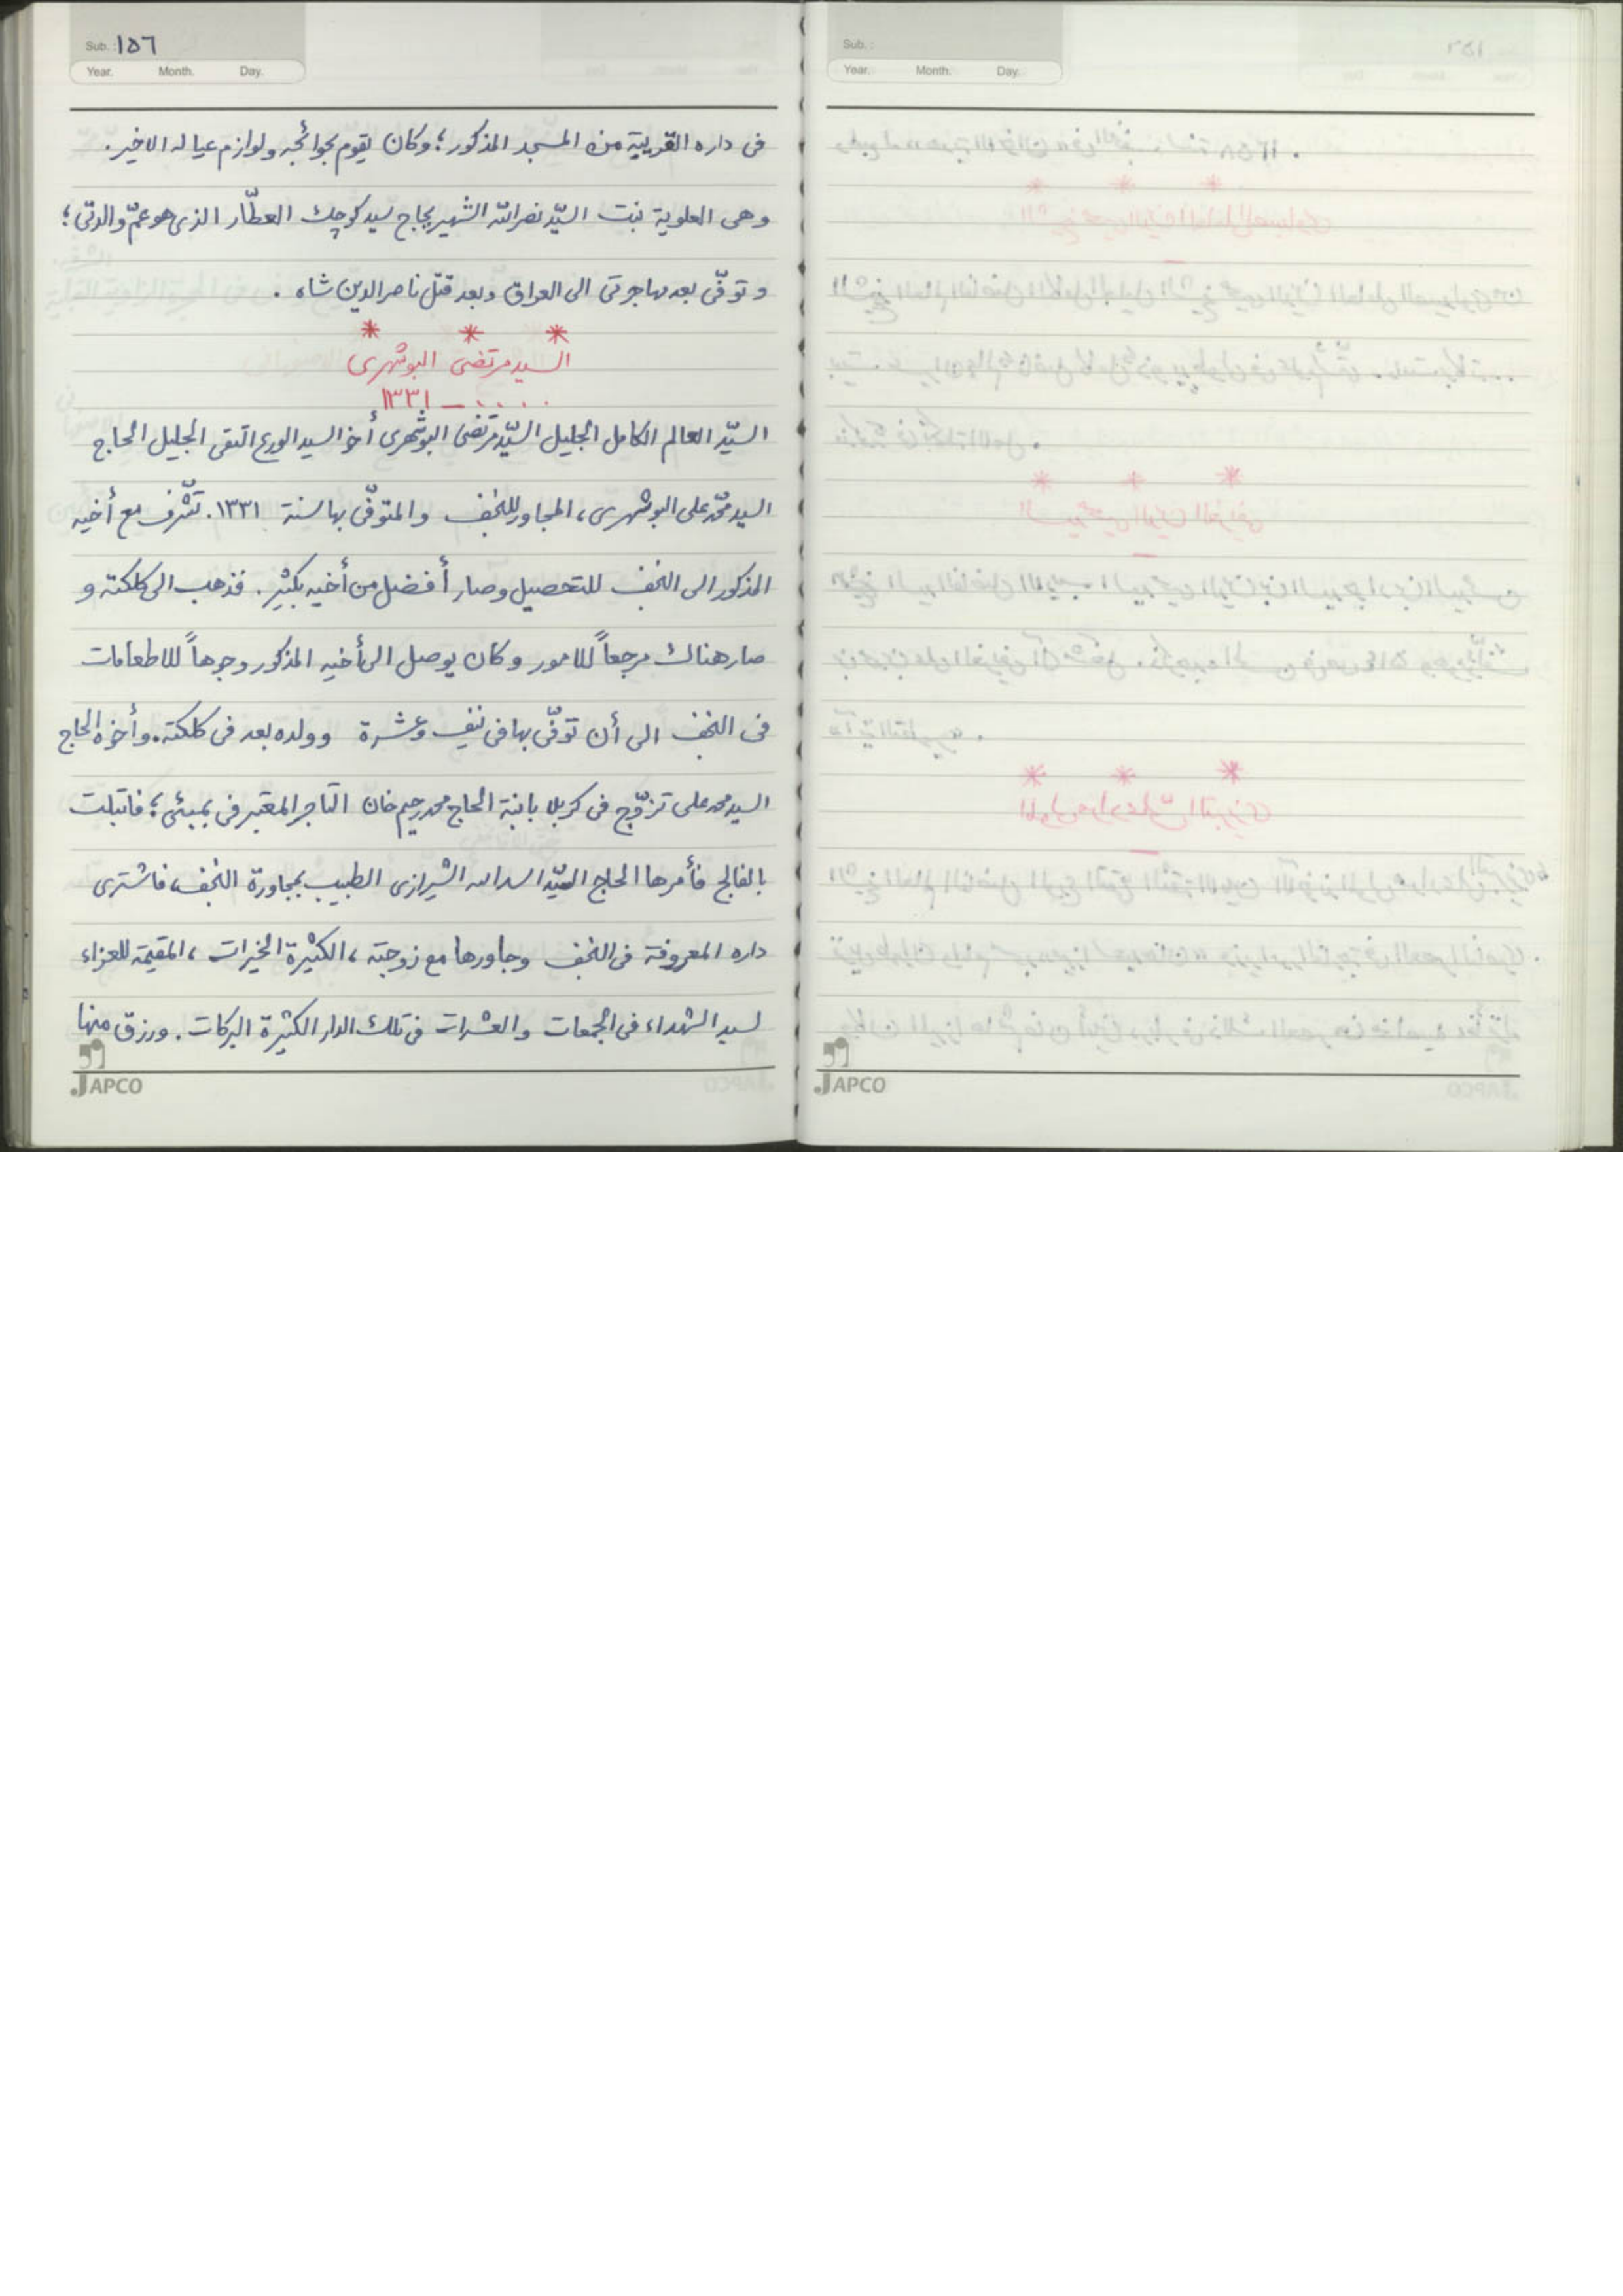 Sub. : ١٥٦
Year. Month. Day.
فى داره القريبة من المسجد المذكور؛ وكان يقوم بحوائجه ولوازم عياله الاخير.
وهى العلوية بنت السيّد نصراللّه الشهير بحاج سيد كوچك العطّار الذى هو عمّ والدتى؛
وتوفّى بعد مهاجرتى الى العراق وبعد قتل ناصرالدين شاه.
* * *
السيد مرتضى البوشهرى
.... – ١٣٣١
السيّد العالم الكامل الجليل السيّد مرتضى البوشهرى أخو السيد الورع التقى الجليل الحاج
السيد محمّد على البوشهرى، المجاور للنجف والمتوفّى بها سنة ١٣٣١. تشّرف مع أخيه
المذكور الى النجف للتحصيل وصار أفضل من أخيه بكثير. فذهب الى كلكته و
صار هناك مرجعاً للامور وكان يوصل الى أخيه المذكور وجوهاً للاطعامات
فى النجف الى أن توفّى بها فى نيف وعشرة وولده بعد فى كلكته. وأخوه الحاج
السيد محمد على تزوّج فى كربلا بابنة الحاج محمد رحيم خان التاجر المعتبر فى بمبئى؛ فابتلت
بالفالج فأمرها الحاج السيّد اسد الله الشيرازى الطبيب بمجاورة النجف، فاشترى
داره المعروفة فى النجف وجاورها مع زوجته، الكثيرة الخيرات، المقيمة للعزاء
لسيد الشهداء فى الجمعات والعشرات فى تلك الدار الكثيرة البركات. ورزق منها
JAPCO
Sub. :
Year. Month. Day.
JAPCO